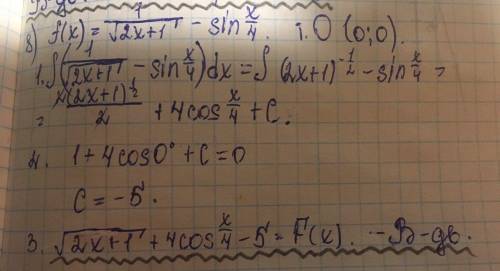 8) f(x) = 1/√(2x+1) - sin x/4 . т. O (0;0).
1. ∫(1/√(2x+1) - sin x/4)dx = ∫(2x+1)^(-1/2) - sin x/4 =
= (2x+1)^(1/2)/2 + 4cos x/4 + C.
2. 1+4cos0° + C = 0
C = -5.
3. √(2x+1) + 4cos x/4 - 5 = F(x). - В-дь.